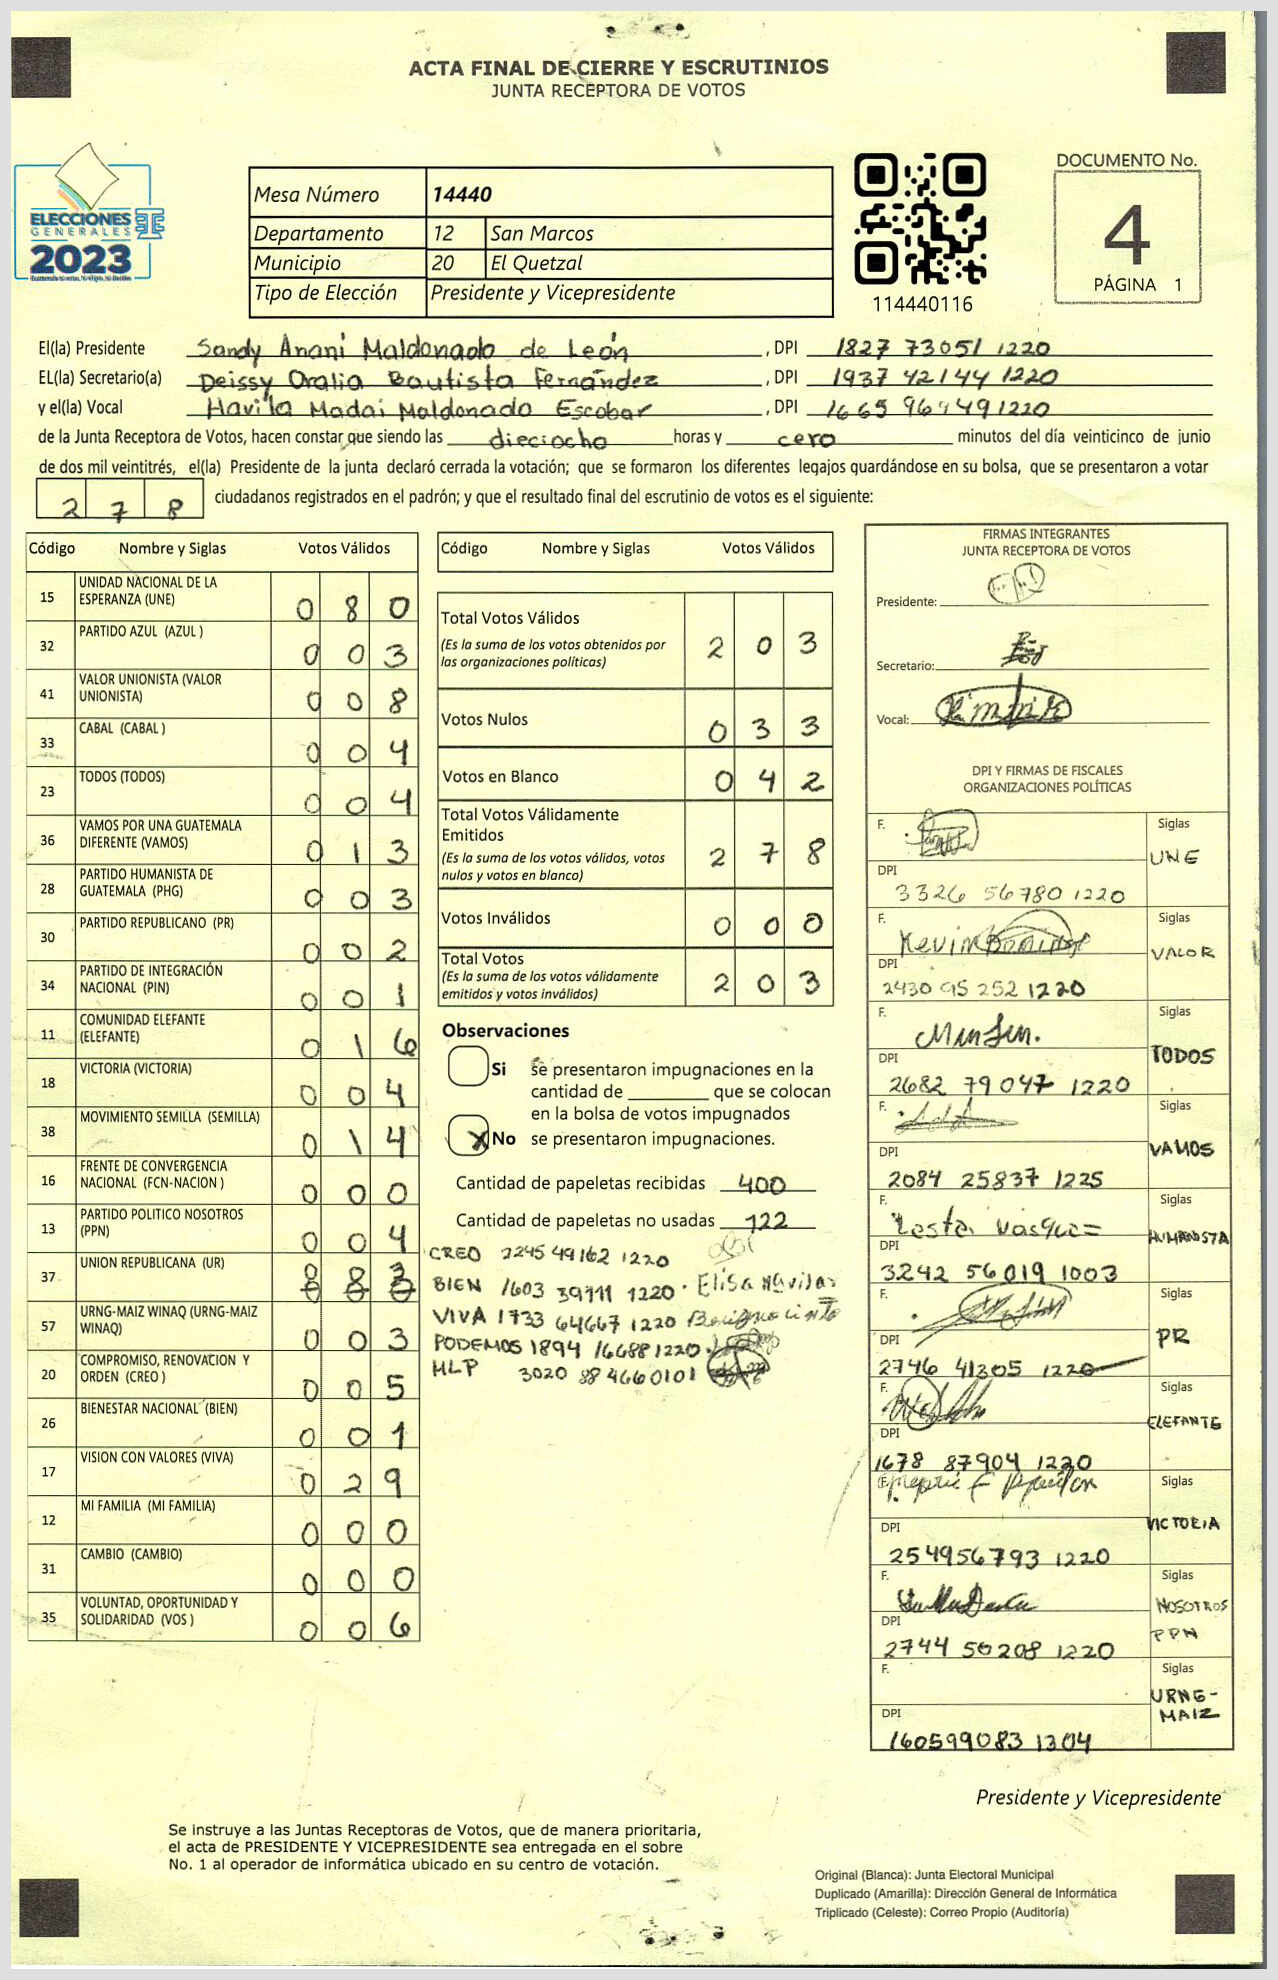 ACTA FINAL DE CIERRE Y ESCRUTINIOS
JUNTA RECEPTORA DE VOTOS
ELECCIONES
GENERALES
2023
Mesa Número 14440
Departamento 12 San Marcos
Municipio 20 El Quetzal
Tipo de Elección Presidente y Vicepresidente
114440116
DOCUMENTO No.
4
PÁGINA 1
El(la) Presidente Sandy Anani Maldonado de León, DPI 1827 73051 1220
EL(la) Secretario(a) Deissy Oralia Bautista Fernández, DPI 1937 42144 1220
y el(la) Vocal Havila Madai Maldonado Escobar, DPI 1665 96449 1220
de la Junta Receptora de Votos, hacen constar que siendo las dieciocho horas y cero minutos del día veinticinco de junio
de dos mil veintitrés, el(la) Presidente de la junta declaró cerrada la votación; que se formaron los diferentes legajos guardándose en su bolsa, que se presentaron a votar
278 ciudadanos registrados en el padrón; y que el resultado final del escrutinio de votos es el siguiente:
Código Nombre y Siglas Votos Válidos
15 UNIDAD NACIONAL DE LA ESPERANZA (UNE) 0 8 0
32 PARTIDO AZUL (AZUL ) 0 0 3
41 VALOR UNIONISTA (VALOR UNIONISTA) 0 0 8
33 CABAL (CABAL ) 0 0 4
23 TODOS (TODOS) 0 0 4
36 VAMOS POR UNA GUATEMALA DIFERENTE (VAMOS) 0 1 3
28 PARTIDO HUMANISTA DE GUATEMALA (PHG) 0 0 3
30 PARTIDO REPUBLICANO (PR) 0 0 2
34 PARTIDO DE INTEGRACIÓN NACIONAL (PIN) 0 0 1
11 COMUNIDAD ELEFANTE (ELEFANTE) 0 1 6
18 VICTORIA (VICTORIA) 0 0 4
38 MOVIMIENTO SEMILLA (SEMILLA) 0 1 4
16 FRENTE DE CONVERGENCIA NACIONAL (FCN-NACION ) 0 0 0
13 PARTIDO POLITICO NOSOTROS (PPN) 0 0 4
37 UNION REPUBLICANA (UR)
57 URNG-MAIZ WINAQ (URNG-MAIZ WINAQ) 0 0 3
20 COMPROMISO, RENOVACION Y ORDEN (CREO ) 0 0 5
26 BIENESTAR NACIONAL (BIEN) 0 0 1
17 VISION CON VALORES (VIVA) 0 2 9
12 MI FAMILIA (MI FAMILIA) 0 0 0
31 CAMBIO (CAMBIO) 0 0 0
35 VOLUNTAD, OPORTUNIDAD Y SOLIDARIDAD (VOS ) 0 0 6
Código Nombre y Siglas Votos Válidos
Total Votos Válidos 2 0 3
(Es la suma de los votos obtenidos por
las organizaciones políticas)
Votos Nulos 0 3 3
Votos en Blanco 0 4 2
Total Votos Válidamente
Emitidos 2 7 8
(Es la suma de los votos válidos, votos
nulos y votos en blanco)
Votos Inválidos 0 0 0
Total Votos 2 0 3
(Es la suma de los votos válidamente
emitidos y votos inválidos)
Observaciones
Si se presentaron impugnaciones en la
cantidad de ________ que se colocan
en la bolsa de votos impugnados
X No se presentaron impugnaciones.
Cantidad de papeletas recibidas 400
Cantidad de papeletas no usadas 122
CREO 2245 49162 1220
BIEN 1603 39111 1220 Elisa
VIVA 1733 64667 1220
PODEMOS 1894 16688 1220
MLP 3020 88466 0101
FIRMAS INTEGRANTES
JUNTA RECEPTORA DE VOTOS
Presidente:
Secretario:
Vocal:
DPI Y FIRMAS DE FISCALES
ORGANIZACIONES POLÍTICAS
F. Siglas UNE
DPI 3326 56780 1220
F. Kevin Siglas VALOR
DPI 2430 95 252 1220
F. Siglas TODOS
DPI 2682 79 047 1220
F. Siglas VAMOS
DPI 2084 25837 1225
F. Siglas HUMANISTA
DPI 3242 56019 1003
F. Siglas PR
DPI 2746 41305 1220
F. Siglas ELEFANTE
DPI 1678 87904 1220
F. Siglas VICTORIA
DPI 254956793 1220
F. Siglas NOSOTROS PPN
DPI 2744 50208 1220
F. Siglas URNG-MAIZ
DPI 160599083 1304
Presidente y Vicepresidente
Se instruye a las Juntas Receptoras de Votos, que de manera prioritaria,
el acta de PRESIDENTE Y VICEPRESIDENTE sea entregada en el sobre
No. 1 al operador de informática ubicado en su centro de votación.
Original (Blanca): Junta Electoral Municipal
Duplicado (Amarilla): Dirección General de Informática
Triplicado (Celeste): Correo Propio (Auditoría)